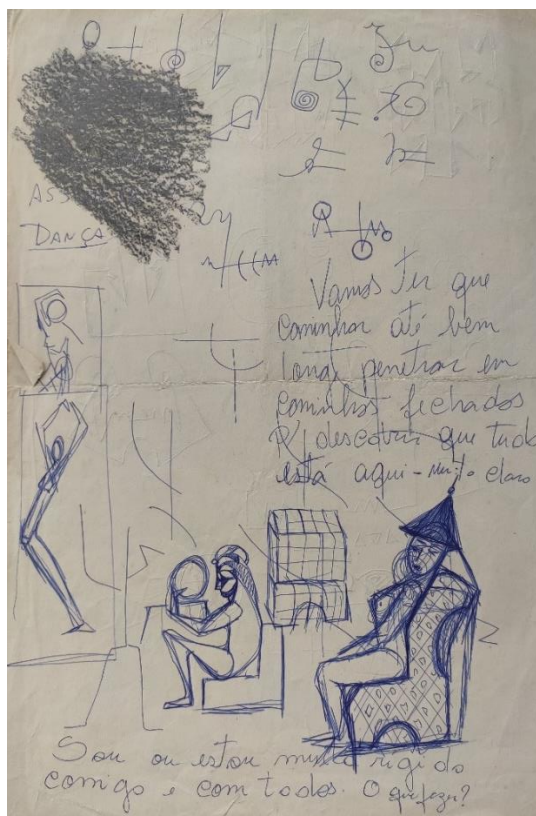 ASS
DANÇA
Vamos ter que
caminhar até bem
longe penetrar em
caminhos fechados
P/ descobrir que tudo
está aqui - muito claro
Sou ou estou muito rígido
comigo e com todos. O que fazer?